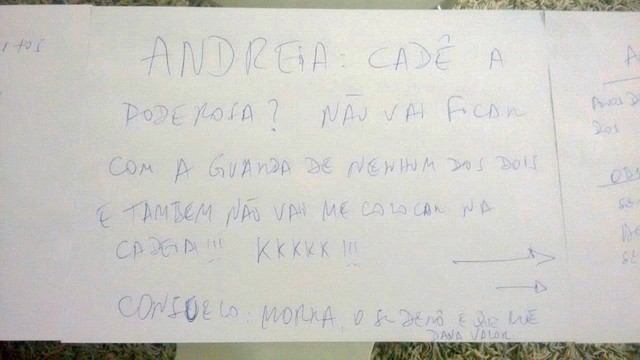 ANDREIA: CADÊ A
PODEROSA? NÃO VAI FICAR
COM A GUARDA DE NENHUM DOS DOIS
E TAMBEM NÃO VAI ME COLOCAR NA
CADEIA!!! KKKKK!!!
CONSUELO: MORRA, O SEU É QUE ME
DAVA VALOR
DOS